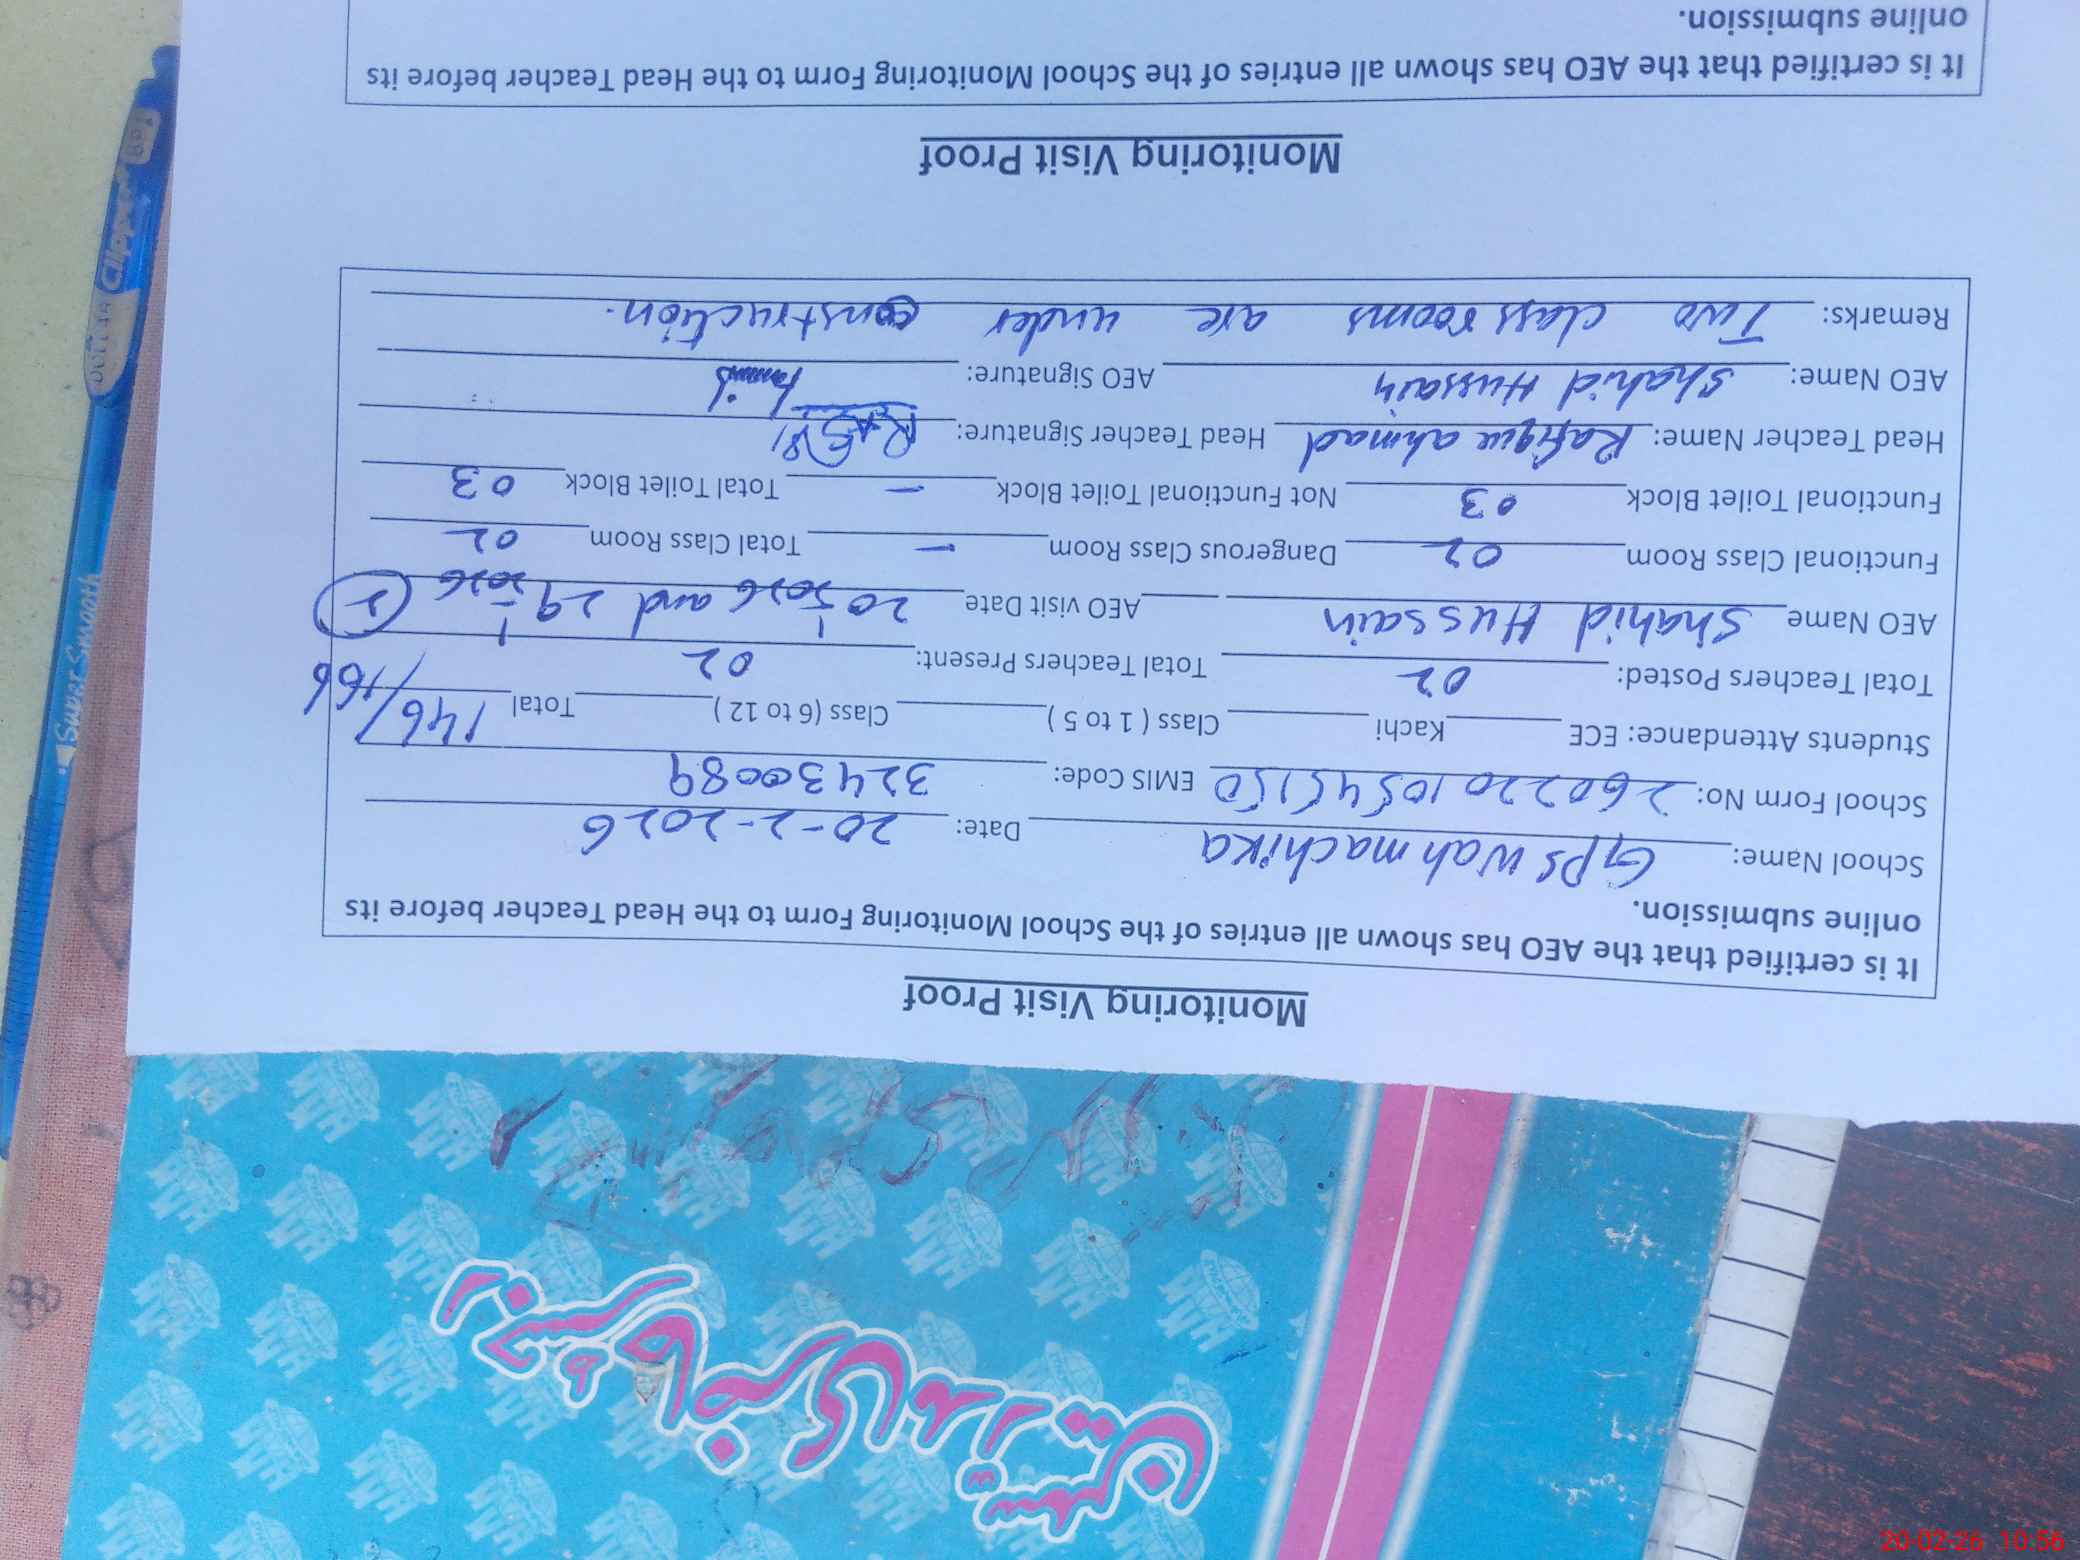 Monitoring Visit Proof
It is certified that the AEO has shown all entries of the School Monitoring Form to the Head Teacher before its
online submission.
School Name: GPS Wah machika Date: 20-2-2026
School Form No: 26022010545150 EMIS Code: 32430089
Students Attendance: ECE Kachi Class ( 1 to 5 ) Class (6 to 12 ) Total 146/166
Total Teachers Posted: 02 Total Teachers Present: 02
AEO Name Shahid Hussain AEO visit Date 20-1-2026 and 29-1-2026 (2)
Functional Class Room 02 Dangerous Class Room - Total Class Room 02
Functional Toilet Block 03 Not Functional Toilet Block - Total Toilet Block 03
Head Teacher Name: Rafique ahmad Head Teacher Signature:
AEO Name: Shahid Hussain AEO Signature:
Remarks: Two class rooms are under construction.
Monitoring Visit Proof
It is certified that the AEO has shown all entries of the School Monitoring Form to the Head Teacher before its
online submission.
DOLLAR Clipper
Super Smooth
20-02-26 10:56